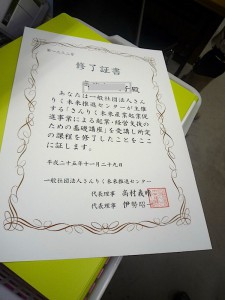 修了証書
殿
あなたは一般社団法人さん
りく未来推進センターが主催
する「さんりく未来産業起業促
進事業による起業・経営支援の
ための基礎講座」を受講し所定
の課程を修了したことをここ
に証します。
平成二十五年十一月二十九日
一般社団法人さんりく未来推進センター
代表理事 高村義晴
代表理事 伊勢昭一